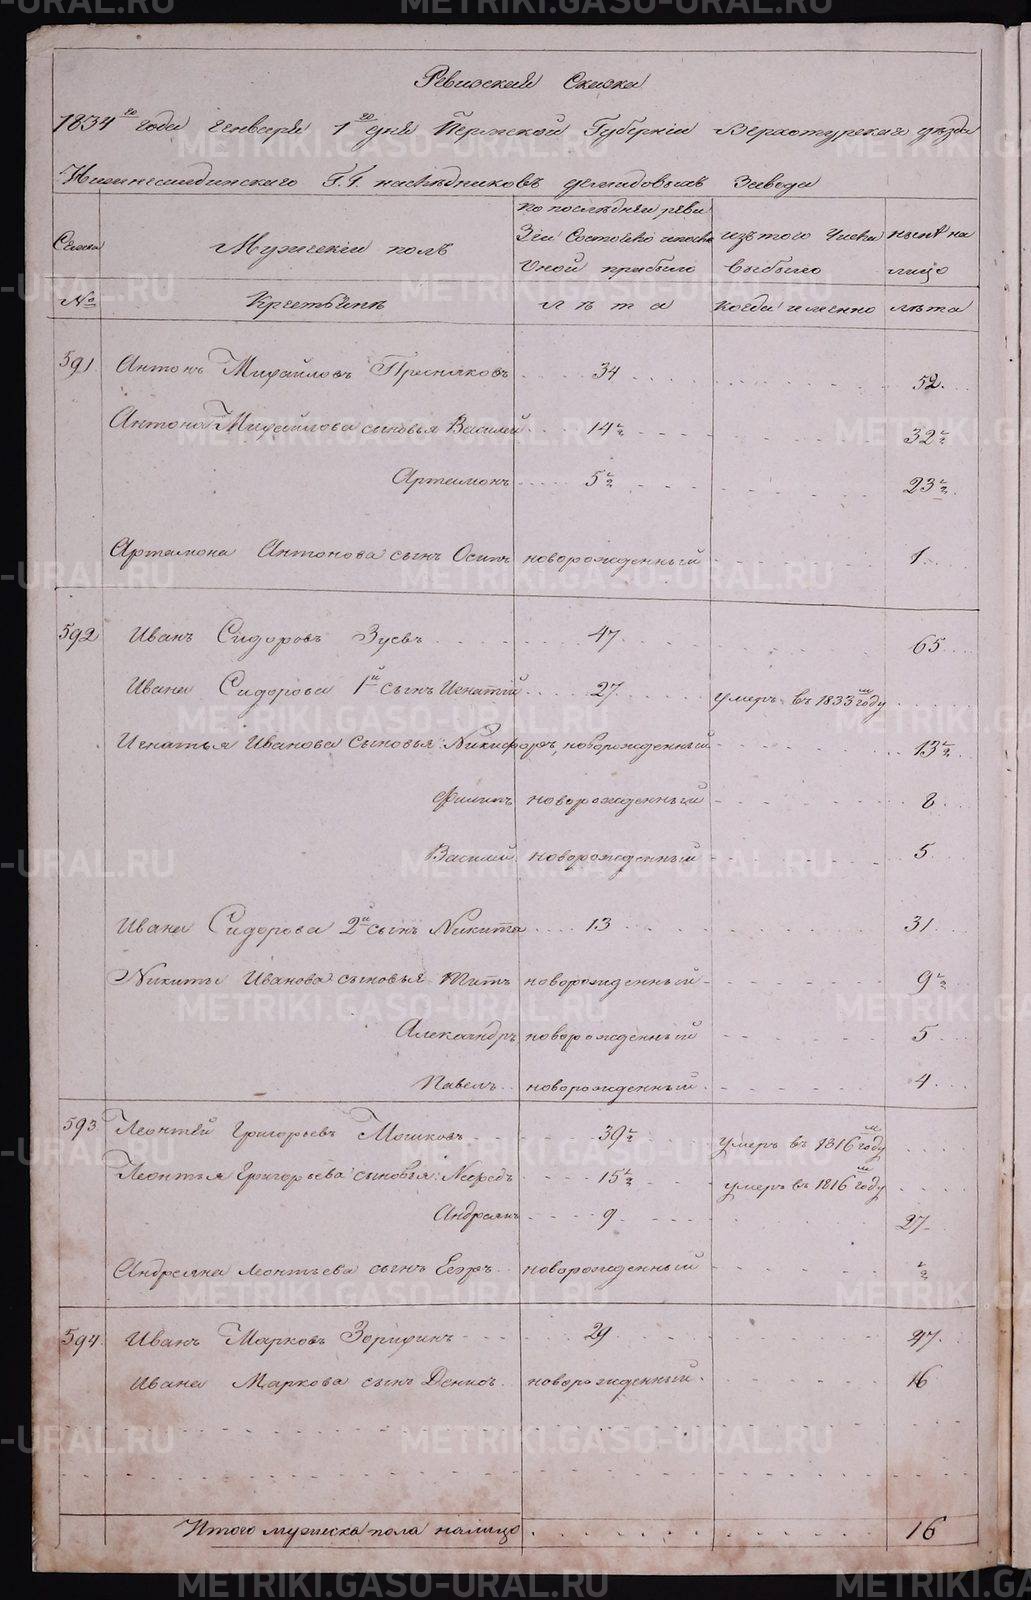 Ревизская Сказка
1834го года генваря 1го дня Пермской Губернии Верхотурскаго уезда
Нижнесалдинскаго Г.Г. наследниковъ демидовыхъ Завода
Семьи
Мужескій полъ
по последней реви
зіи Состояло и после
Оной прибыло
изъ того Числа
выбыло
ныне на
лицо
№
Крестьяне
лѣта
когда именно
лѣта
591 Антонъ Михайловъ Пресняковъ 34 52
Антона Михайлова сыновья Василей 14½ 32½
Артемонъ 5½ 23½
Артемона Антонова сынъ Осипъ новорожденный 1
592 Иванъ Сидоровъ Зуевъ 47 65
Ивана Сидорова 1й сынъ Игнатій 27 умеръ въ 1833м году
Игнатья Иванова Сыновья: Никифоръ новорожденный 13½
Филипъ новорожденный 8
Василій новорожденный 5
Ивана Сидорова 2й сынъ Никита 13 31
Никиты Иванова сыновья Титъ новорожденный 9½
Александръ новорожденный 5
Павелъ новорожденный 4
593 Леонтей Григорьевъ Мошковъ 39½ умеръ въ 1816м году
Леонтья Григорьева сыновья: 15½ умеръ въ 1816м году
Андреянъ 9 27
Андреяна Леонтьева сынъ Егоръ новорожденный ½
594 Иванъ Марковъ 29 47
Ивана Маркова сынъ Денисъ новорожденный 16
Итого мужеска пола налицо 16
METRIKI.GASO-URAL.RU